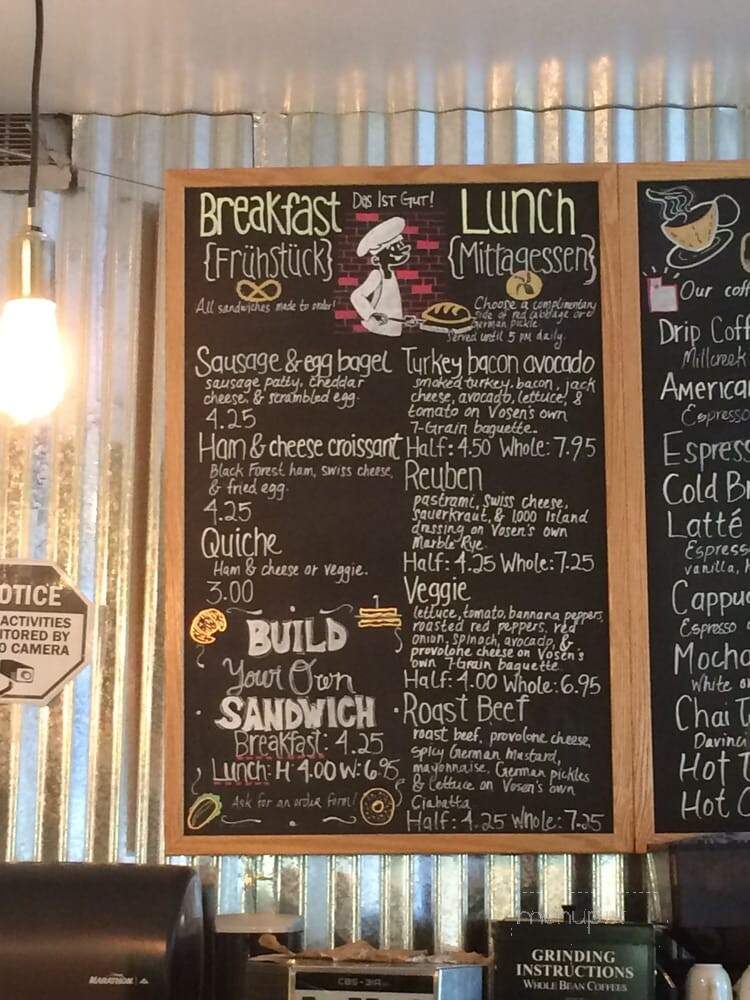 Breakfast
{Frühstück}
All sandwiches made to order!
Das Ist Gut!
Lunch
{Mittagessen}
Choose a complimentary
side of red cabbage or a
German pickle
Served until 5 PM daily.
Sausage & egg bagel
sausage patty, cheddar
cheese, & scrambled egg.
4.25
Ham & cheese croissant
Black Forest ham, swiss cheese,
& fried egg.
4.25
Quiche
Ham & cheese or veggie.
3.00
BUILD
Your Own
SANDWICH
Breakfast: 4.25
Lunch: H 4.00 W: 6.95
Ask for an order form!
Turkey bacon avocado
smoked turkey, bacon, jack
cheese, avocado, lettuce, &
tomato on Vosen's own
7-Grain baguette.
Half: 4.50 Whole: 7.95
Reuben
pastrami, swiss cheese,
sauerkraut, & 1,000 Island
dressing on Vosen's own
Marble Rye.
Half: 4.25 Whole: 7.25
Veggie
lettuce, tomato, bannana peppers,
roasted red peppers, red
onion, spinach, avocado, &
provolone cheese on Vosen's
own 7-Grain baguette
Half: 4.00 Whole: 6.95
Roast Beef
roast beef, provolone cheese,
spicy German mustard,
mayonnaise, German pickles
& lettuce on Vosen's own
Ciabatta
Half: 4.25 Whole: 7.25
Our coff
Drip Coff
Millcreek
American
Espresso
Espress
Cold Br
Latté
Espress
vanilla, h
Cappuc
Espresso
Mocha
White or
Chai T
Davinci
Hot T
Hot C
OTICE
ACTIVITIES
ITORED BY
O CAMERA
MARATHON
CBS-31A
menupix
GRINDING
INSTRUCTIONS
WHOLE BEAN COFFEES